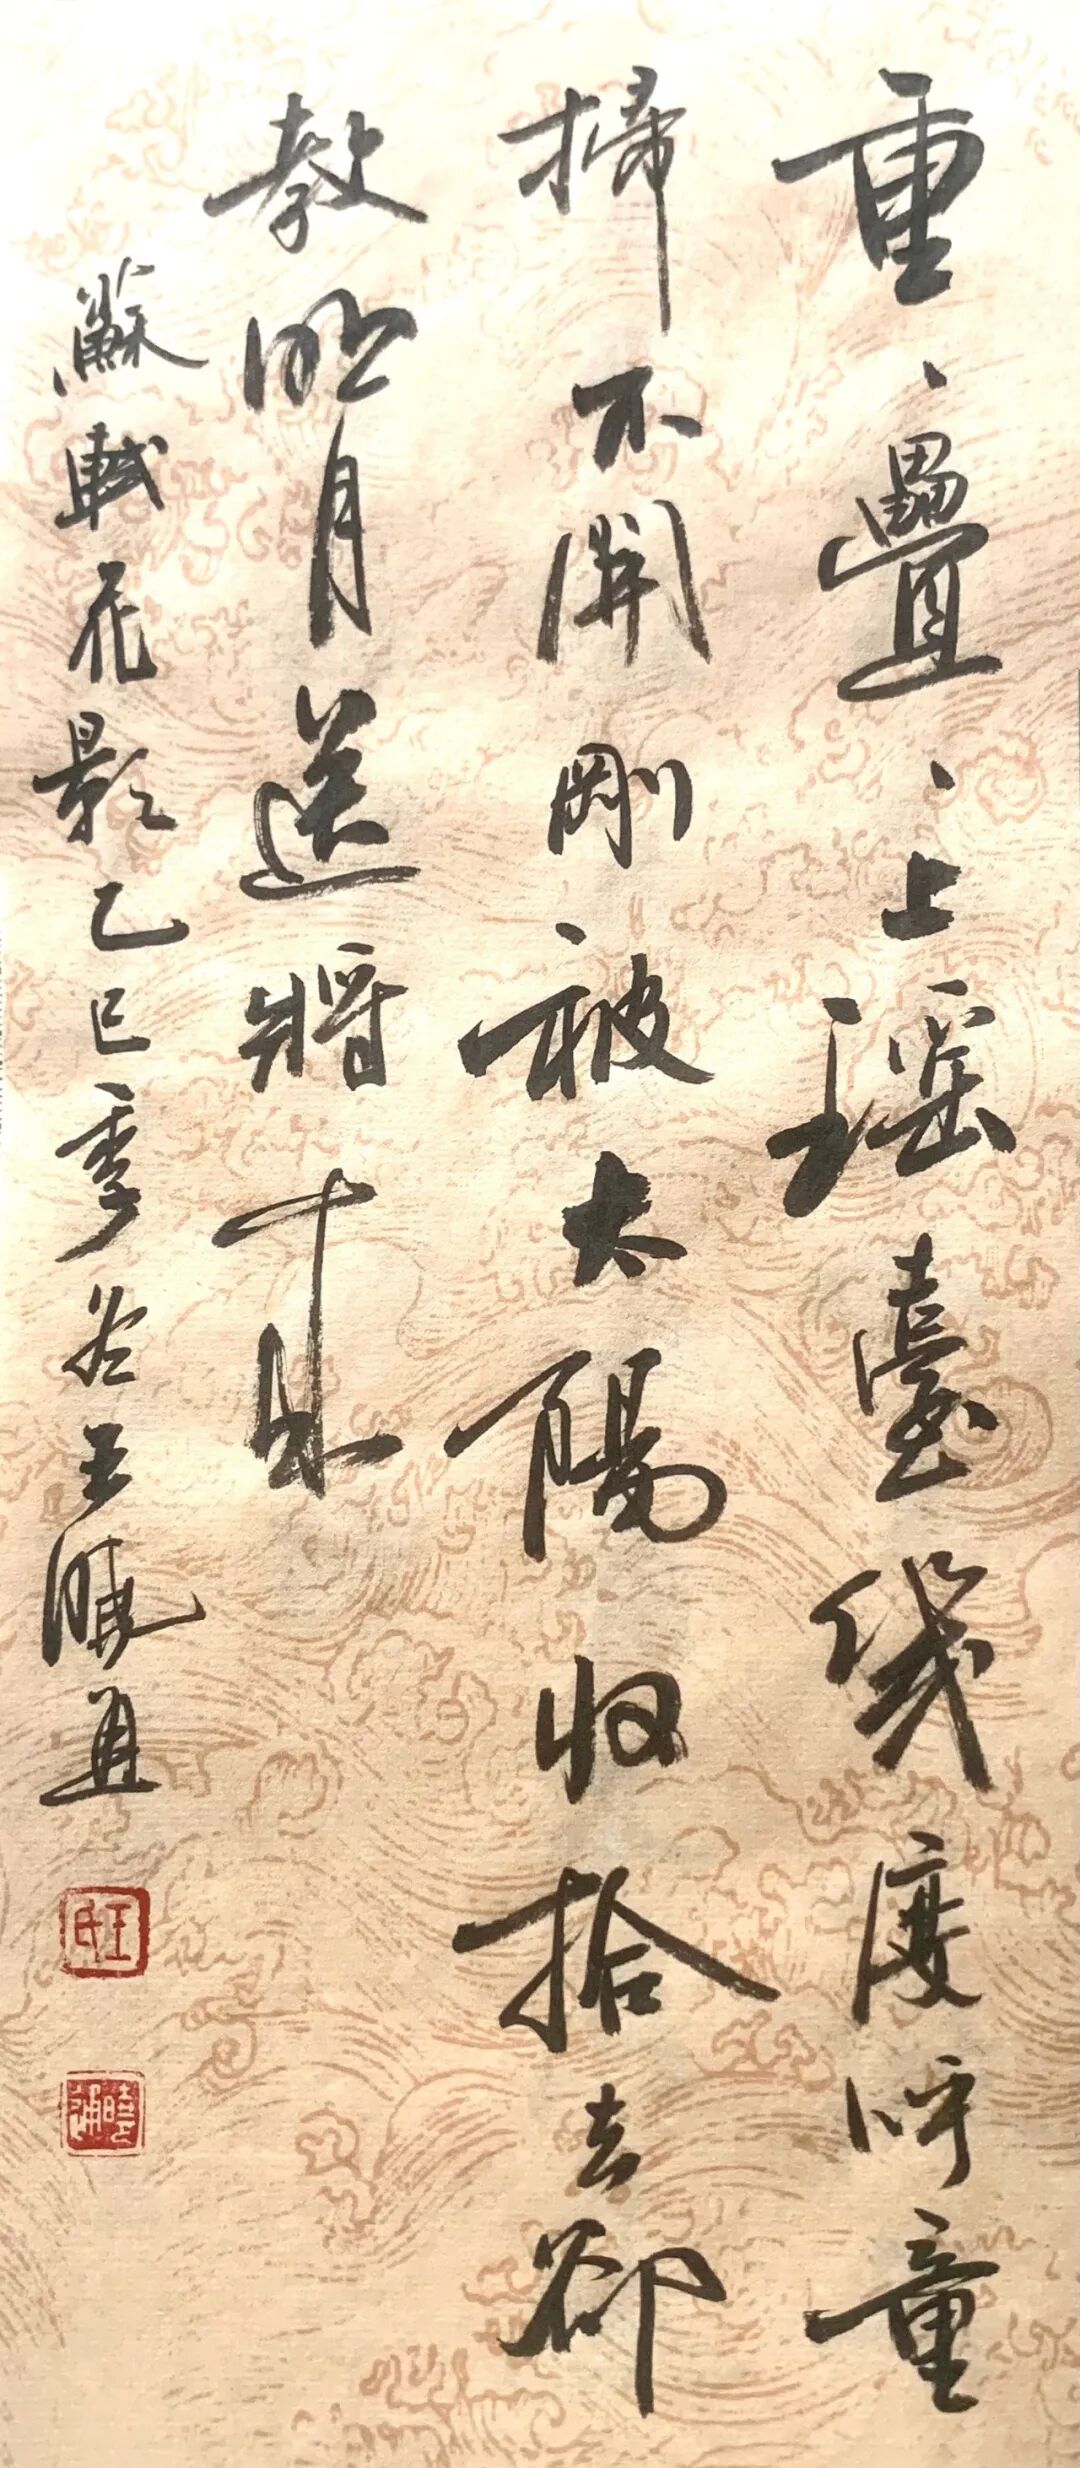 重、疊、上瑶臺幾度呼童
掃不開剛被太陽收拾去卻
教明月送將來
蘇軾花影乙巳季冬王曉通
王氏